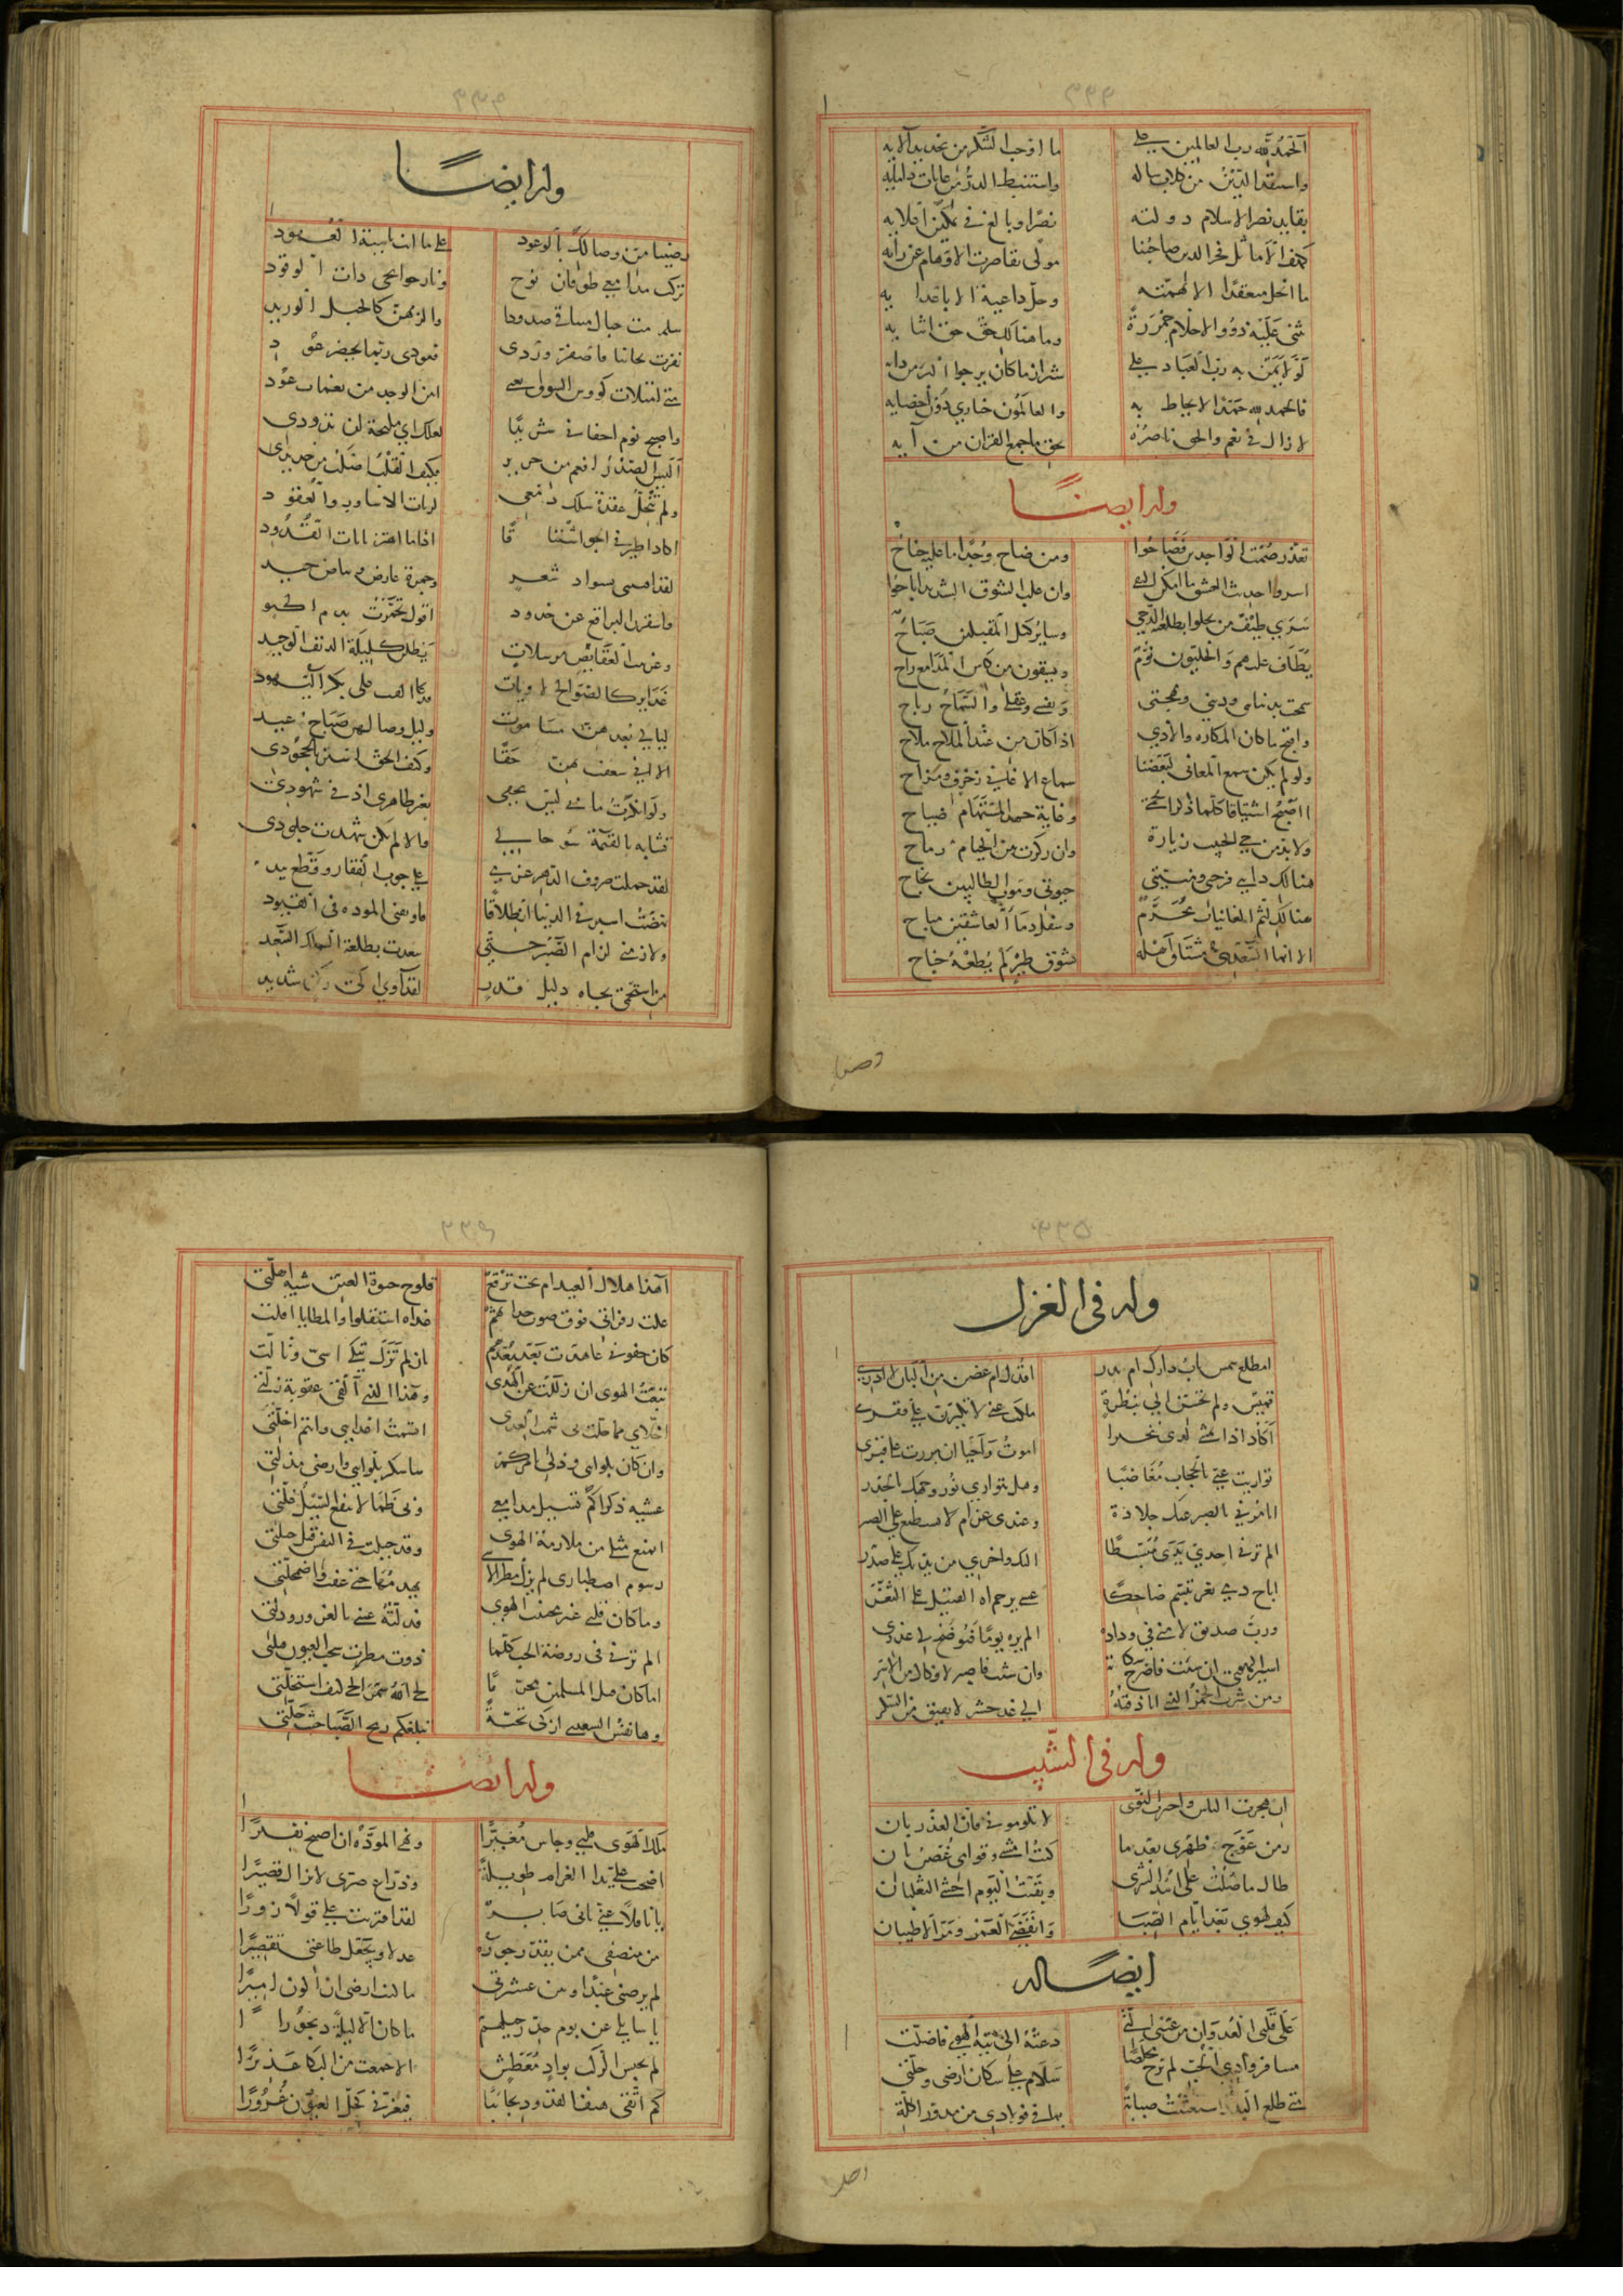 ٣٣٣
الحمد لله رب العالمين على ما اوجب الشكر من تجديد آلائه
واستنقذ الدين من كلاب سالبه واستنبط الدر من غايات دأمائه
بقايد نصر الاسلام دولته نصرا وبالغ في تمكين اقلابه
كهف الاماثل فخر الدين صاحبنا مولى تقاصرت الاوهام عن رأيه
ما انحل منعقدا الا بهمته وحل داعية الا باعدابه
ثنى عليه ذوو الاحلام وما هنالك حق حق اثنائه
لولا يمن به رب العباد على شيراز ما كان يرجو البرء من دائه
فالحمد لله حمدا لا يحاط به والعالمون حيارى دون احصائه
لا زال في نعم والحق ناصره بحق ما جمع القرآن من آيه
وله ايضا
تعذر صمت الواجدين فصاحوا ومن صاح وجدا ما عليه جناح
اسروا حديث العشق ما امكن التقى وان غلب الشوق الشديد اباحوا
سرى طيف من يجلو بطلعته الدجى وساير ليل المقبلين صباح
يطاف عليهم والخليون نوم ويسقون من كاس المدامع راح
سمحت بدنياي وديني ومهجتي ونفسي وعقلي والسماح رباح
واقبح ما كان المكاره والاذى اذا كان من عند الملاح ملاح
ولو لم يكن سمع المعاني لبعضنا سماع الاغاني زخرف ومزاح
اصيح اشتياقا كلما ذكر الحمى وغاية جهد المستهام صياح
ولا بد من حي الحبيب زيارة وان ركزت بين الخيام رماح
هنالك دائي فرحتي ومنيتي حيوتي وموت الطالبين نجاح
هنالك لثم الغانيات محرم وسفك دماء العاشقين مباح
الا انما السعدي مشتاق اهله تشوق طير لم يطعه جناح
رضينا
٣٣٤
وله ايضا
رضينا من وصالك بالوعود على ما انت ناسية العهود
تركت مدامعي طوفان نوح ونار جوانحي ذات الوقود
نفرت تجانبا فاصفر وردي فعودي ربما يخضر عود
متى امتلات كؤوس الشوق
واصبح نوم اجفاني شريدا لعلك اي مليحة ان تذودي
اليس الصدر انعم من حرير فكيف القلب اصلب من حديد
ولم تنحل عقدة سلك دمعي لربات الاساور والعقود
اكاد اطير في الجو اشتياقا اذا ما اهتز بانات القدود
لقد امسى بسواد شعر وحمرة عارض وبياض جيد
واسفرن البراقع عن خدود اقول تحمرت بدم الكبود
وغربيب العقايص مرسلات يطلن كليلة الدنف الوحيد
غداير كالصوالج لاويات قد التفت على بكر النهود
ليالي بعدهن مساء موت وليل وصالهن صباح عيد
الا اني شغفت بهن حقا وكيف الحق استر بالجحود
ولو انكرت ما بي ليس يخفى تغير ظاهري ادنى شهودي
تشابه بالقيمة سوء حالي والا لم تكن شهدت جلودي
لقد حملت صروف الدهر عزمي على جوب القفار وقطع بيد
نهضت اسير في الدنيا انطلاقا فاوثقني المودة في القيود
ولازمني لزام الصبر حتى سعدت بطلعة الملك السعيد
من استحمى بجاه جليل قدر لقد آوى الى ركن شديد
٣٣٥
وله في الغزل
امطلع شمس باب دارك ام بدر اقدك ام غصن من البان لا ادري
تميس ولم تحسن الي بنظرة ملكت غنى لا تكبرن على فقري
اكاد اذا تمشي لدي تبخترا اموت واحيا ان مررت على قبري
تواريت عني بالحجاب مغاضبا وهل يتوارى نور وجهك بالخدر
اتامرني بالصبر عنك جلادة وعندي غرام لا يستطيع على الصبر
الم ترني احدى يدي مبسطا اليك واخرى من يديك على صدر
اباح دمي ثغر تبسم ضاحكا عسى يرحم الله القتيل على الثغر
ورب صديق لامني في وداده الم يره يوما فيوضح لي عذري
اسير الهوى ان شئت فاصرخ شكاية وان شئت فاصبر لا فكاك من الاسر
ومن شرب الخمر الذي انا ذقته الى غد حشر لا يفيق من السكر
وله في الشيب
ان هجرت الناس واخترت النوى لا تلوموني فان العذر بان
زمن عوج ظهري بعد ما كنت امشي وقوامي غصن بان
طال ما صلت على اسد الشرى وبقيت اليوم اخشى الثعلبان
كيف لهوي بعد ايام الصبا وانقضى العمر ومر الاطيبان
ايضا له
على قلبي العدوان من عيني التي دعته الى تيه الهوى فاضلت
مسافر وادي الحب لم يرج مخلصا سلام على سكان ارضي وحلتي
متى طلع البدر استعنت صبابة بما في فؤادي من بدور اكلة
اهذا
٣٣٦
اهذا هلال العيد ام تحت برقع تلوح جبوه العين شبه اهلة
علت زفراتي فوق صوت حداتهم غداة استقلوا والمطايا اقلت
كان جفوني عاهدت بعد بعدهم بان لم تزل تبكي اسى وتالت
تبعت الهوى ان زللت عن الهدى وهذا الذي القى عقوبة زلتي
اخلاي مما حلت بي شمت العدى اشمت اعدائي وانتم اخلتي
وان كان بلوائي وذلي بامركم ساشكر بلوائي وارضى مذلتي
عشية ذكراكم تسيل مدامعي وبي ظمأ لا ينقع السيل غلتي
ايمنع مثلي من ملازمة الهوى وقد جبلت في النفس قبل جبلتي
رسوم اصطباري لم يزل مطر الاسى يهدمها حتى عفت واضمحلت
وما كان قلبي غير مجتنب الهوى فدلته عيني بالغرور ودلت
الم ترني في روضة الحب كلما ذوت مطرت سحب العيون فبلت
اما كان قتل المسلمين محرما لحى الله سمر الحي كيف استحلت
وها نفس السعدي ازكى تحية تبلغكم ريح الصبا حيث حلت
وله ايضا
ملك الهوى قلبي وجاس مغيرا ونهى المودة ان اصيح نفيرا
اضحت علي يد الغرام طويلة وذراع صبري لا يزال قصيرا
يا ناقلا عني باني صابر لقد افتريت علي قولا زورا
من منصفي ممن يقدر جوره عدلا ويجعل طاعتي تقصيرا
لم يرض عبدا ومن عشيرتي ما كنت ارضى ان اكون اميرا
يا سائلي عن يوم جد رحيلهم ما كان الا ليلة ديجورا
لم يحبس الركب بواد معطش الا جمعت من البكاء غديرا
كم اتقي هيفا لقد ودي تجانبا فيغرني كحل العيون غرورا